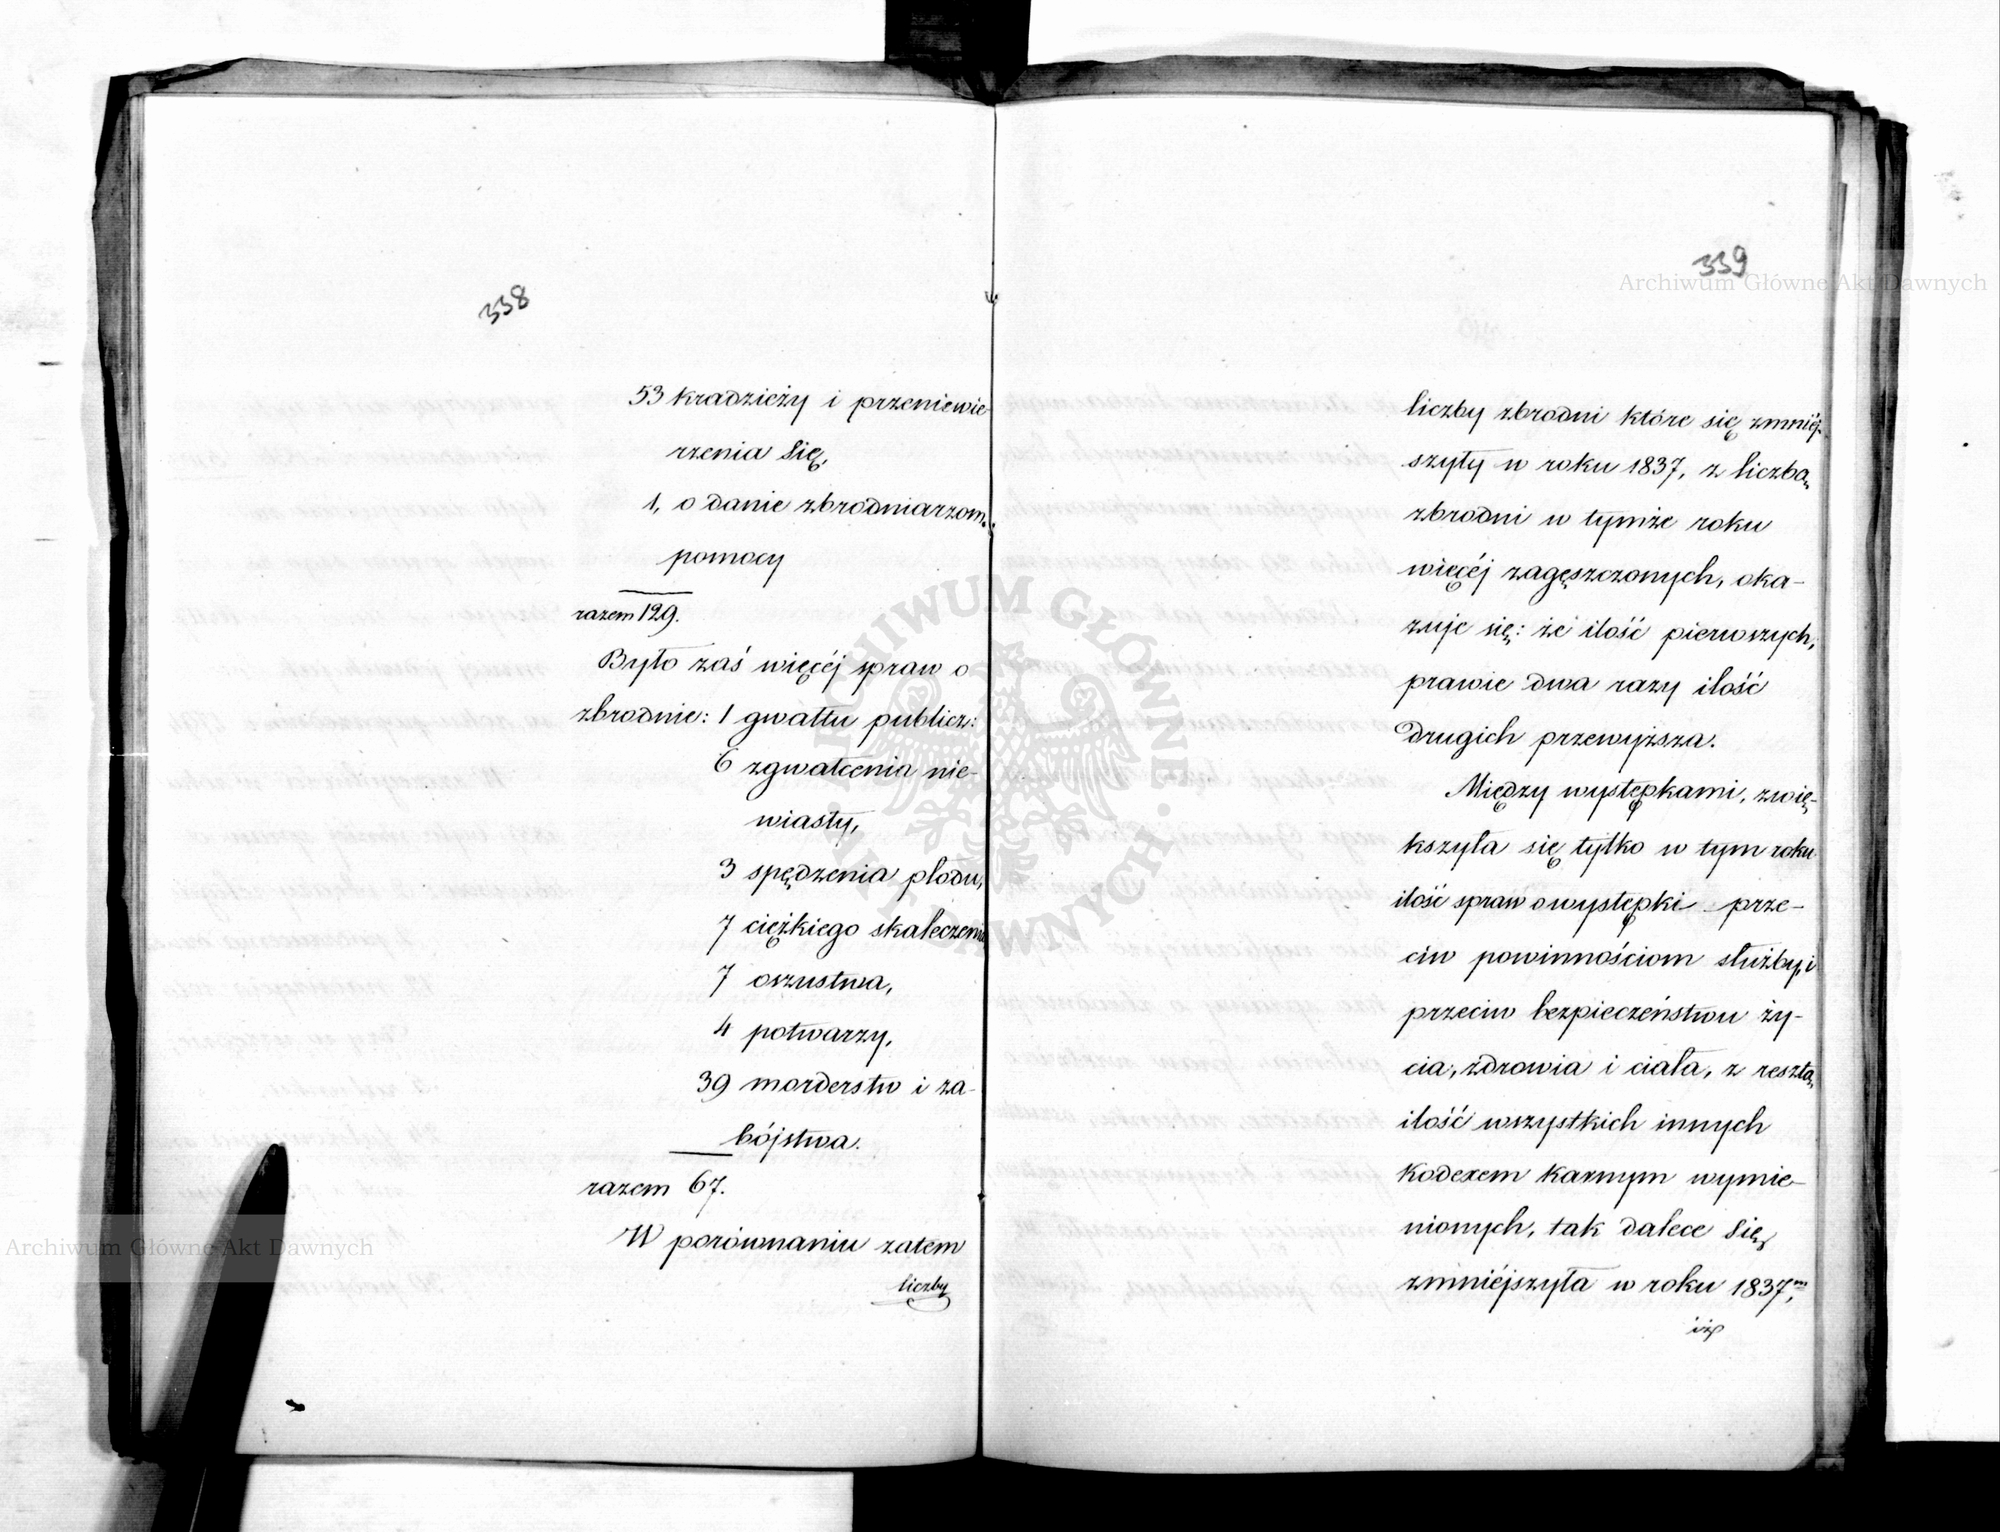 338
53 kradzieży i przeniewie-
rzenia się,
1, o danie zbrodniarzom
pomocy
razem 129.
Było zaś więcéj spraw o
zbrodnie: 1 gwałtu publicz:
6 zgwałcenia nie-
wiasty,
3 spędzenia płodu,
7 ciężkiego skaleczenia
7 oszustwa,
4 potwarzy,
39 morderstw i za-
bójstwa.
razem 67.
W porównaniu zatem
liczby
339
liczby zbrodni które się zmniéj-
szyły w roku 1837, z liczbą
zbrodni w tymże roku
więcéj zagęszczonych, oka-
zuje się: że ilość pierwszych,
prawie dwa razy ilość
drugich przewyższa.
Między występkami, zwię-
kszyła się tylko w tym roku
ilość spraw o występki prze-
ciw powinnościom służby, i
przeciw bezpieczeństwu ży-
cia, zdrowia i ciała, z resztą,
ilość wszystkich innych
kodexem karnym wymie-
nionych, tak dalece się
zmniéjszyła w roku 1837,m
iż
Archiwum Główne Akt Dawnych
Archiwum Główne Akt Dawnych
ARCHIWUM GŁÓWNE · AKT DAWNYCH ·